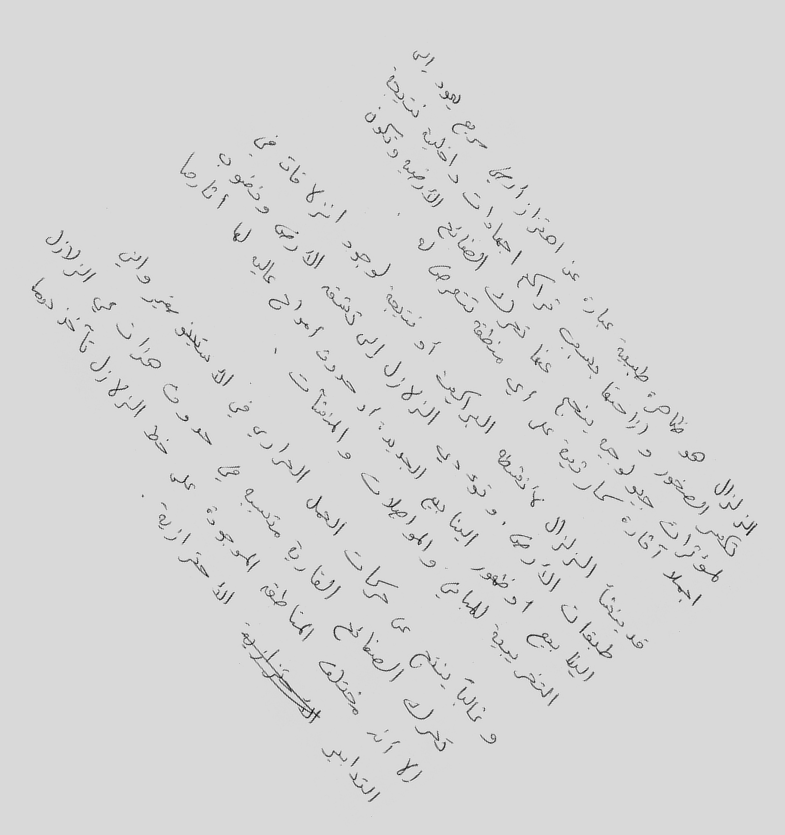 الزلزال هو ظاهرة طبيعية عبارة عن اهتزاز أرضي سريع يعود إلى
تكسر الصخور و إزاحتها بسبب تراكم اجهادات داخلية نتيجة
لمؤثرات جيولوجية ينجم عنها تحرك الصفائح الأرضية وتكون
اجملا آثاره كارثية على أي منطقة تتعرض له .
قد ينشأ الزلزال كأنشطة البراكين أو نتيجة لوجود انزلاقات في
طبقات الأرض . وتؤدي الزلازل إلى تشقق الأرض ونضوب
الينابيع أو ظهور الينابيع الجديدة أو حدوث أمواج عالية لها أثارها
التخريبية للمباني والمواصلات والمنشآت .
و غالباً ينتج عن حركات الحمل الحراري في الأستينوسفير والتي
تحرك الصفائح القارية متسببه في حدوث هزات هي الزلازل
إلا أنه مختلف المناطق الموجودة على خط الزلازل تأخذ دوما
التدابير الأحترازية .